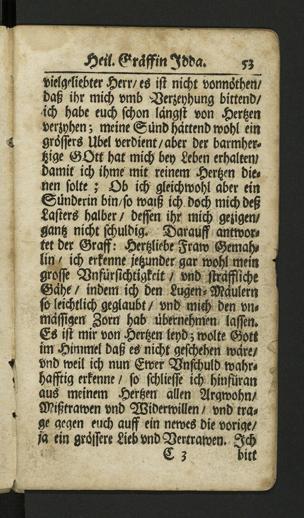 Heil. Gräffin Idda. 53
vielgeliebter Herr/ es ist nicht vonnöthen/
daß ihr mich vmb Verzeyhung bittend/
ich habe euch schon längst von Hertzen
verzyhen; meine Sünd hättend wohl ein
grössers Vbel verdient/ aber der barmher-
tzige GOtt hat mich bey Leben erhalten/
damit ich ihme mit reinem Hertzen die-
nen solte; Ob ich gleichwohl aber ein
Sünderin bin/ so waiß ich doch mich deß
Lasters halber/ dessen ihr mich gezigen/
gantz nicht schuldig. Darauff antwor-
tet der Graff: Hertzliebe Fraw Gemah-
lin/ ich erkenne jetzunder gar wohl mein
grosse Vnfürsichtigkeit/ vnd sträffliche
Gähe/ indem ich den Lugen-Mäulern
so leichtlich geglaubt/ vnd mich den vn-
mässigen Zorn hab übernehmen lassen.
Es ist mir von Hertzen leyd; wolte Gott
im Himmel daß es nicht geschehen wäre/
vnd weil ich nun Ewer Vnschuld wahr-
hafftig erkenne/ so schliesse ich hinfüran
aus meinem Hertzen allen Argwohn/
Mißtrawen vnd Widerwillen/ vnd tra-
ge gegen euch auff ein newes die vorige/
ja ein grössere Lieb vnd Vertrawen. Ich
C 3 bitt